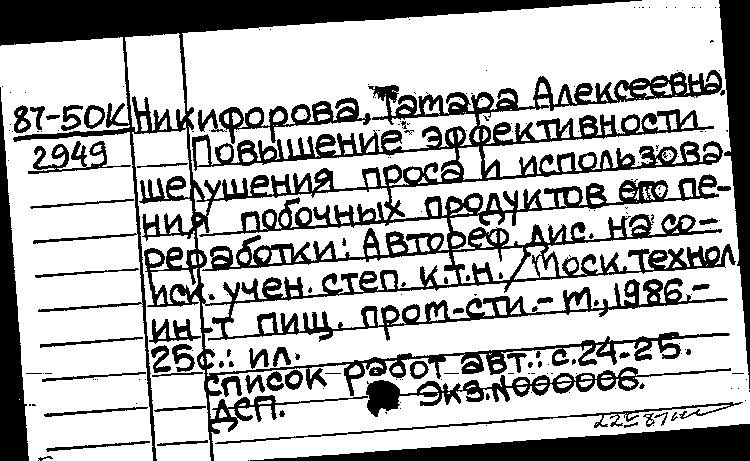 87-50К Никифорова, Тамара Алексеевна.
2949 Повышение эффективности
шелушения проса и использова-
ния побочных продуктов его пе-
реработки: Автореф. дис. на со-
иск. учен. степ. к.т.н. / Моск. технол.
ин-т пищ. пром-сти. - М., 1986. -
25с.: ил.
Список работ авт.: с.24-25.
ДСП. Экз.N000006.